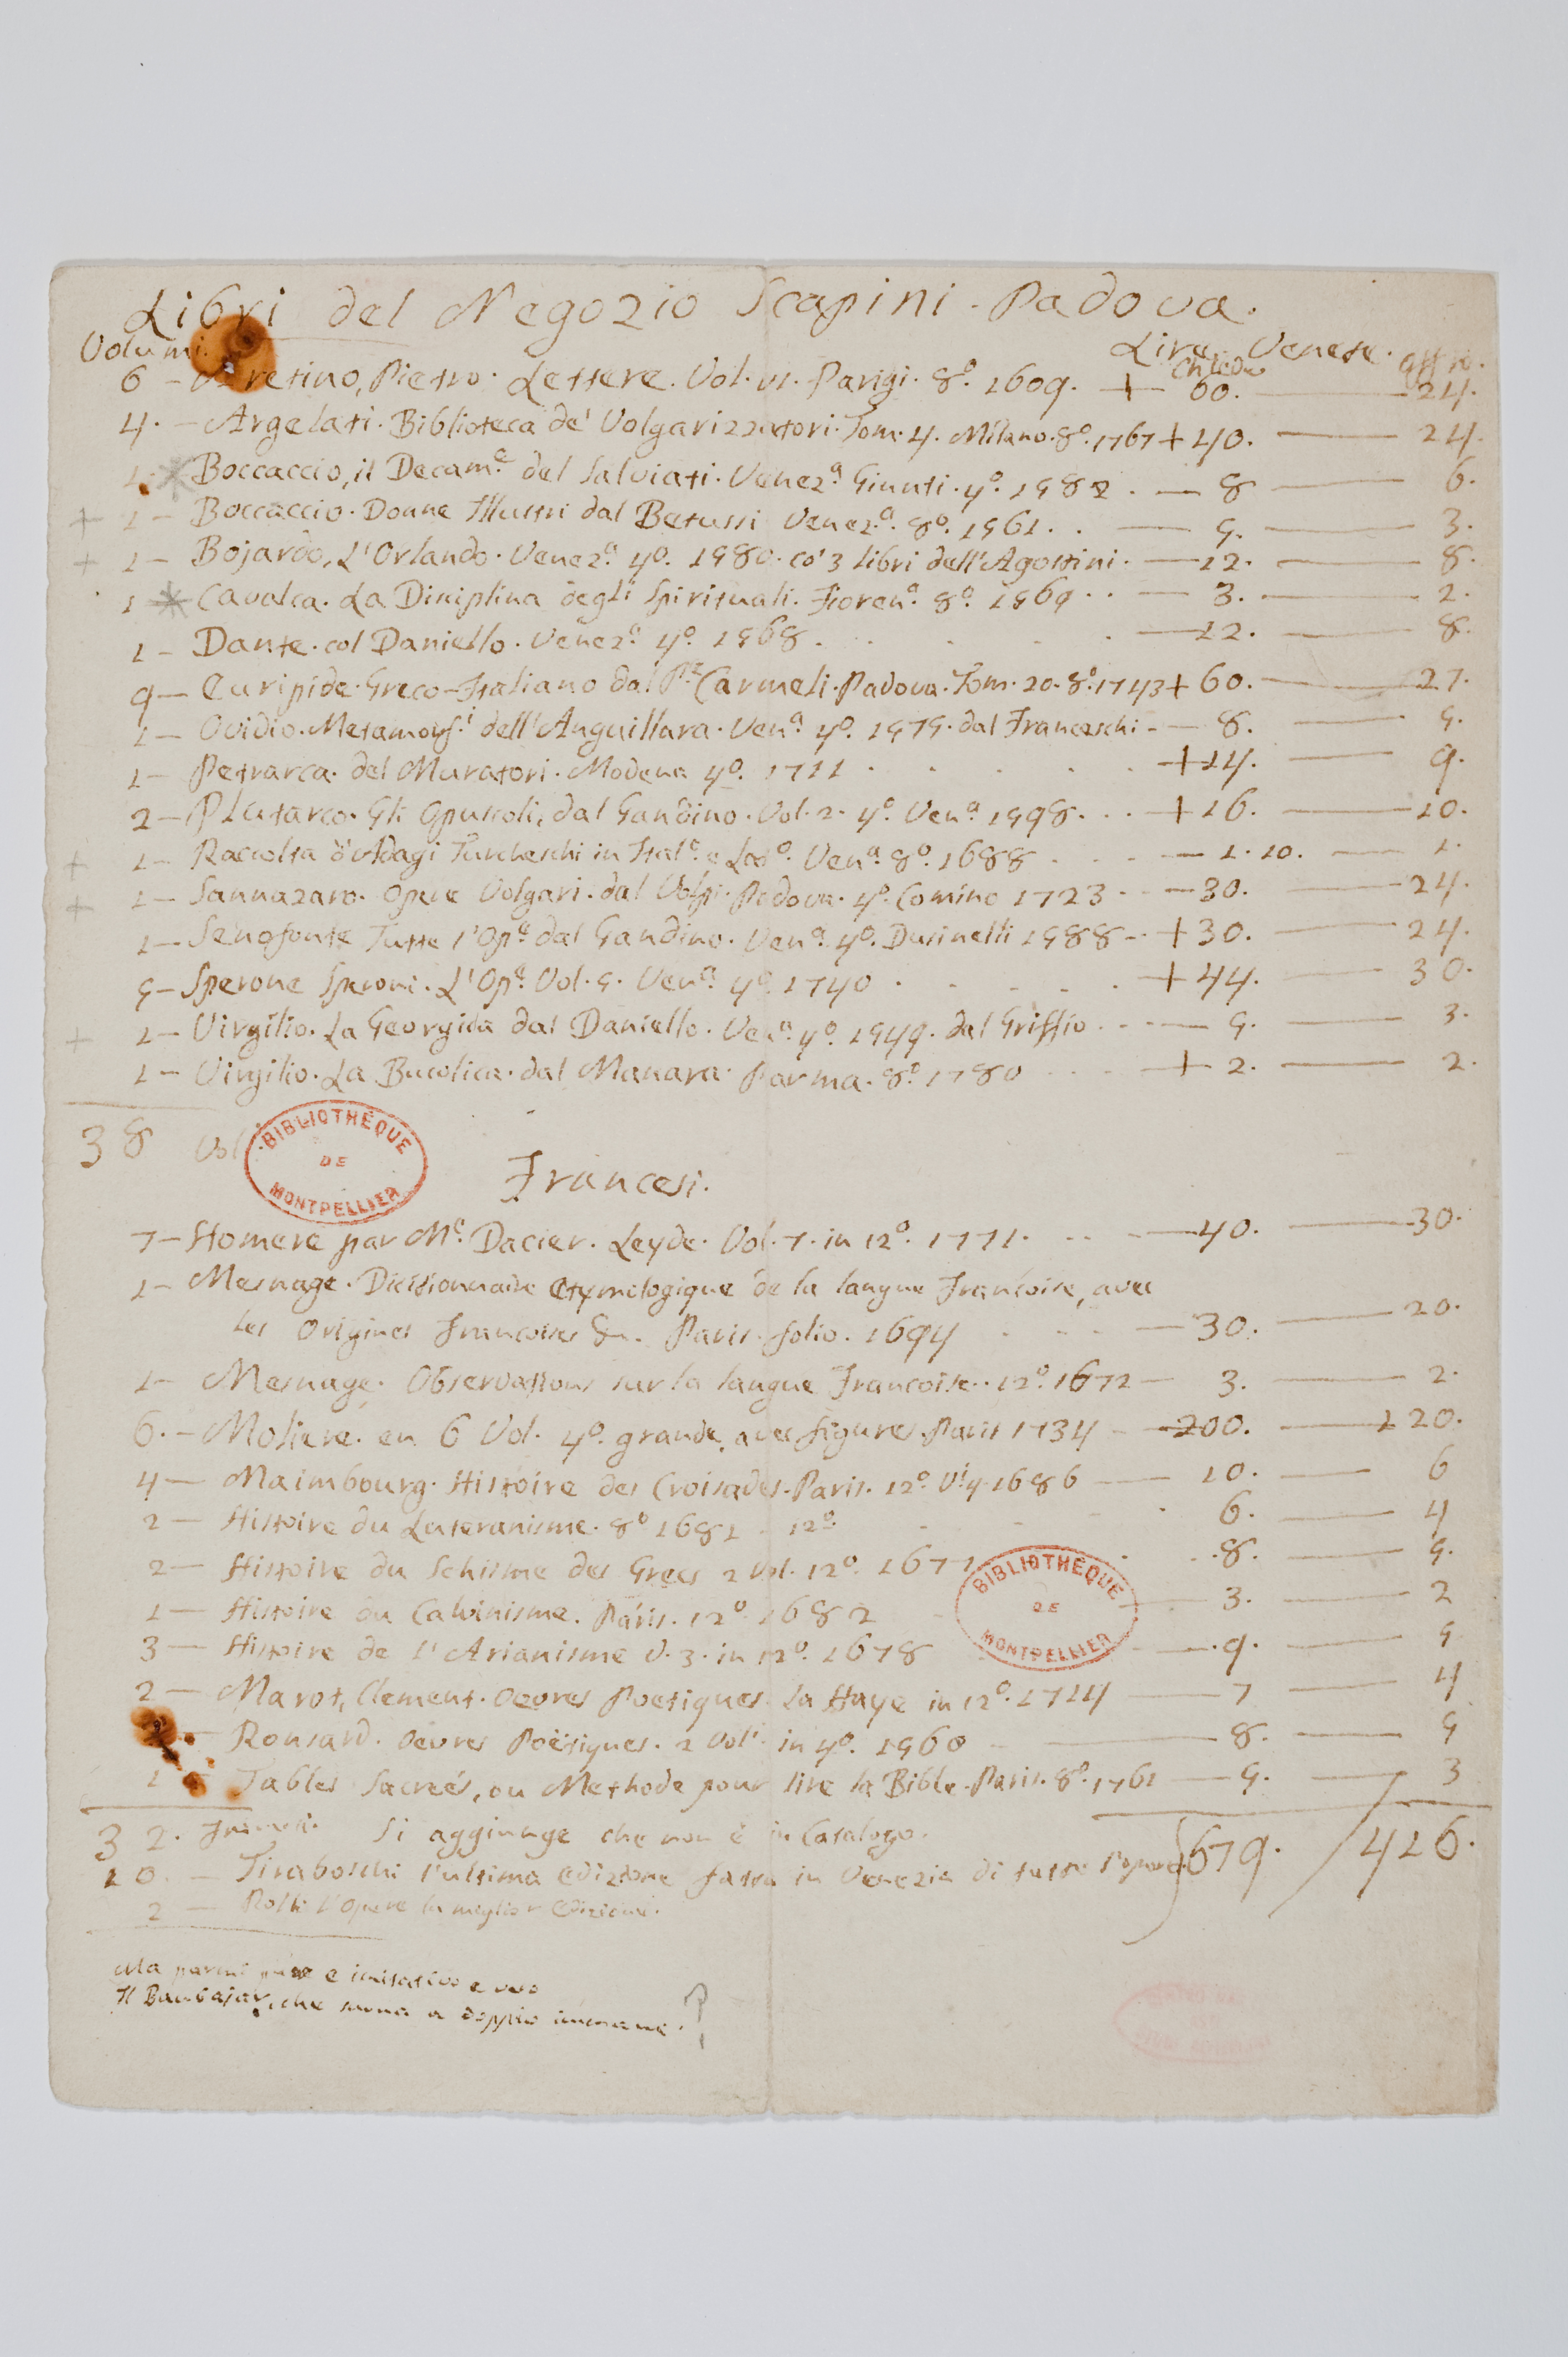 Libri del Negozio Scapini. Padova.
Volumi. Lire Venete.
Chiede offro.
6 - Aretino, Pietro. Lettere. Vol. VI. Parigi. 8.º 1609. + 60. 24.
4. - Argelati. Biblioteca de' Volgarizzatori. Tom. 4. Milano. 8.º 1767 + 40. 24.
1. * Boccaccio, il Decam.e del Salviati. Venez.a Giunti. 4.º 1582. - 8 6.
+ 1 - Boccaccio. Donne Illustri dal Betussi Venez.a 8.º 1561. . - 5. 3.
+ 1 - Bojardo, L'Orlando. Venez.a 4.º 1580. co' 3 libri dell'Agostini. - 12. 8.
1 * Cavalca. La Disciplina degli Spirituali. Fioren.a 8.º 1569 . . - 3. 2.
1 - Dante. col Daniello. Venez.a 4.º 1568. . . . . - 12. 8.
9 - Euripide. Greco-Italiano dal P.re Carmeli. Padova. Tom. 20. 8.º 1743 + 60. 27.
1 - Ovidio. Metamorf.i dell'Anguillara. Ven.a 4.º 1575. dal Franceschi - 8. 5.
1 - Petrarca. del Muratori. Modena 4.º 1711 . . . . . + 14. 9.
2 - Plutarco. Gli Opuscoli, dal Gandino. Vol. 2. 4.º Ven.a 1598. . . + 16. 10.
+ 1 - Raccolta d'Adagi Turcheschi in Ital.o e Lat.o Ven.a 8.º 1688 . . . - 1. 10. 1.
+ 1 - Sannazaro. Opere Volgari. dal Volpi. Padova. 4.º Comino 1723 - - 30. 24.
1 - Senofonte Tutte l'Op.e dal Gandino. Ven.a 4.º Dusinelli 1588 - + 30. 24.
5 - Sperone Speroni. L'Op.e Vol. 5. Ven.a 4.º 1740 . . . . . + 44. 30.
+ 1 - Virgilio. La Georgica dal Daniello. Ven.a 4.º 1549. dal Griffio. - - 5. 3.
1 - Virgilio. La Bucolica. dal Manara. Parma. 8.º 1780 . . . + 2. 2.
38 Vol
BIBLIOTHÈQUE DE MONTPELLIER
Francesi.
7 - Homere par M.e Dacier. Leyde. Vol. 7. in 12.º 1771. . . - 40. 30.
1 - Mesnage. Dictionnaire Etymologique de la langue Francoise, avec
les Origines Francoises &c. Paris. folio. 1694 . . . - 30. 20.
1 - Mesnage. Observations sur la langue Francoise. 12.º 1672 - 3. 2.
6. - Moliere. en 6 Vol. 4.º grande, avec figures. Paris 1734 - 200. 120.
4 - Maimbourg. Histoire des Croisades. Paris. 12.º V. 4. 1686 - 10. 6
2 - Histoire du Luteranisme. 8º 1681 - 12.º . . . 6. 4
2 - Histoire du Schisme des Grecs 2 Vol. 12.º 1677 . . . 8. 5.
1 - Histoire du Calvinisme. Paris. 12.º 1682 - 3. 2
BIBLIOTHÈQUE DE MONTPELLIER
3 - Histoire de l'Arianisme V. 3. in 12.º 1678 - 9. 5
2 - Marot, Clement. Oevres Poetiques. La Haye in 12.º 1714 - 7 4
- Ronsard. Oevres Poëtiques. 2 Vol. in 4.º 1560 - 8. 5
1 Tables Sacreés, ou Methode pour lire la Bible. Paris. 8.º 1761 - 5. 3
32. Francesi. Si aggiunge che non è in Catalogo. 679. 416.
10. - Tiraboschi l'ultima edizione fatta in Venezia di tutte l'opere
2 - Rolli l'Opere la miglior Edizione.
Ma parmi e imitativo e
Il che suona a doppio ?